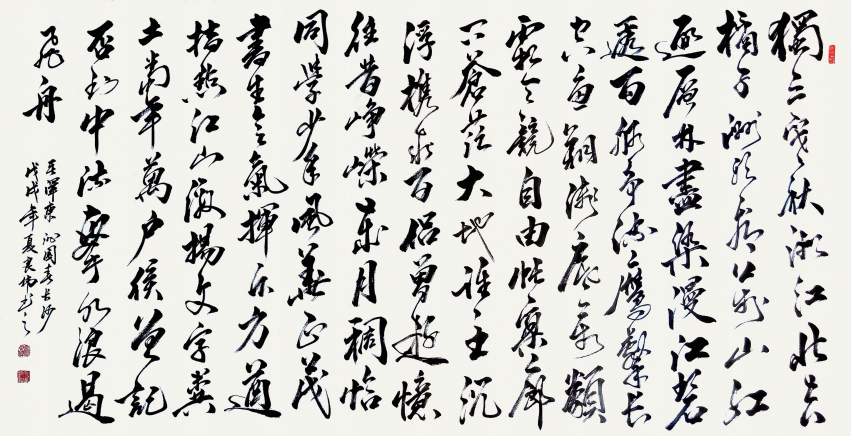 獨立寒秋湘江北去
橘子洲頭看万山紅
遍層林盡染漫江碧
透百舸爭流鷹擊長
空魚翔淺底萬類
霜天競自由悵寥廓
问蒼茫大地誰主沉
浮攜來百侶曾遊憶
往昔崢嶸歲月稠恰
同學少年風華正茂
書生意氣揮斥方遒
指點江山激揚文字糞
土當年萬戶侯曾記
否到中流擊水浪遏
飛舟
毛澤東沁園春長沙
戊戌年夏